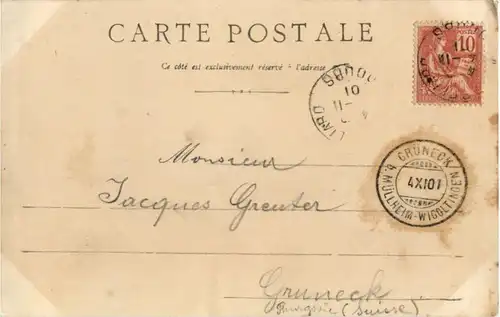 CARTE POSTALE
Ce côté est exclusivement réservé à l'adresse
10
DOUBS
01
11
GRÜNECK
4 XI 01
b. MÜLLHEIM-WIGOLTINGEN
Monsieur
Jacques Greuter
Gruneck
(Suisse)